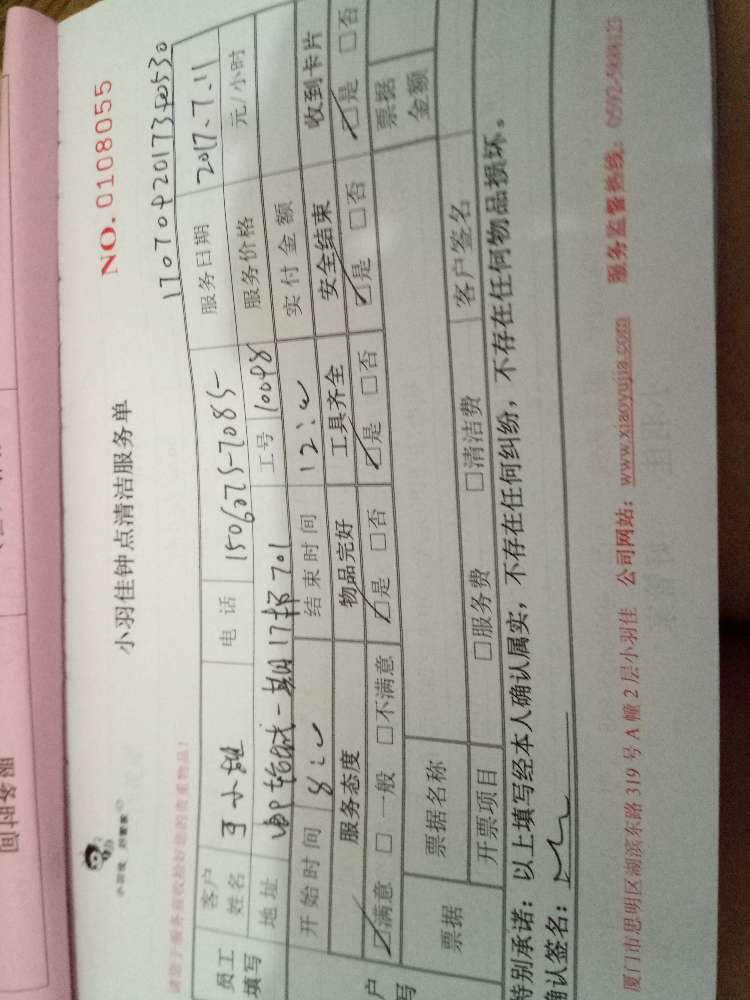 NO.0108055
小羽佳钟点清洁服务单
小羽佳 好管家
请您于服务前收拾好您的贵重物品!
员工填写
客户姓名 王小姐 电话 15060257085 服务日期 2017.7.11
地址 一期17栋701 工号 10098 服务价格 元/小时
开始时间 8:00 结束时间 12:00 实付金额
服务态度 物品完好 工具齐全 安全结束 收到卡片
☑满意 □一般 □不满意 ☑是 □否 ☑是 □否 ☑是 □否 ☑是 □否
户
写
票据 票据名称 票据金额
开票项目 □服务费 □清洁费 客户签名
特别承诺:以上填写经本人确认属实,不存在任何纠纷,不存在任何物品损坏。
确认签名:
厦门市思明区湖滨东路 319 号 A 幢 2 层小羽佳 公司网站:www.xiaoyujia.com 服务监督热线:
服务时间